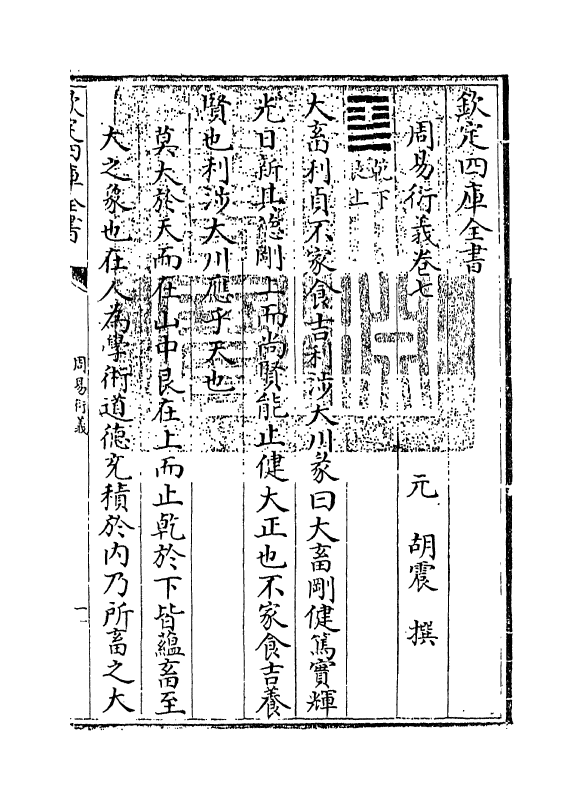 欽定四庫全書
周易衍義卷七
元　胡震　撰
乾下
艮上
大畜利貞不家食吉利涉大川彖曰大畜剛健篤實輝
光日新其德剛上而尚賢能止健大正也不家食吉養
賢也利涉大川應乎天也
莫大於天而在山中艮在上而止乾於下皆蘊畜至
大之象也在人為學術道德充積於内乃所畜之大
欽定四庫全書
周易衍義
一